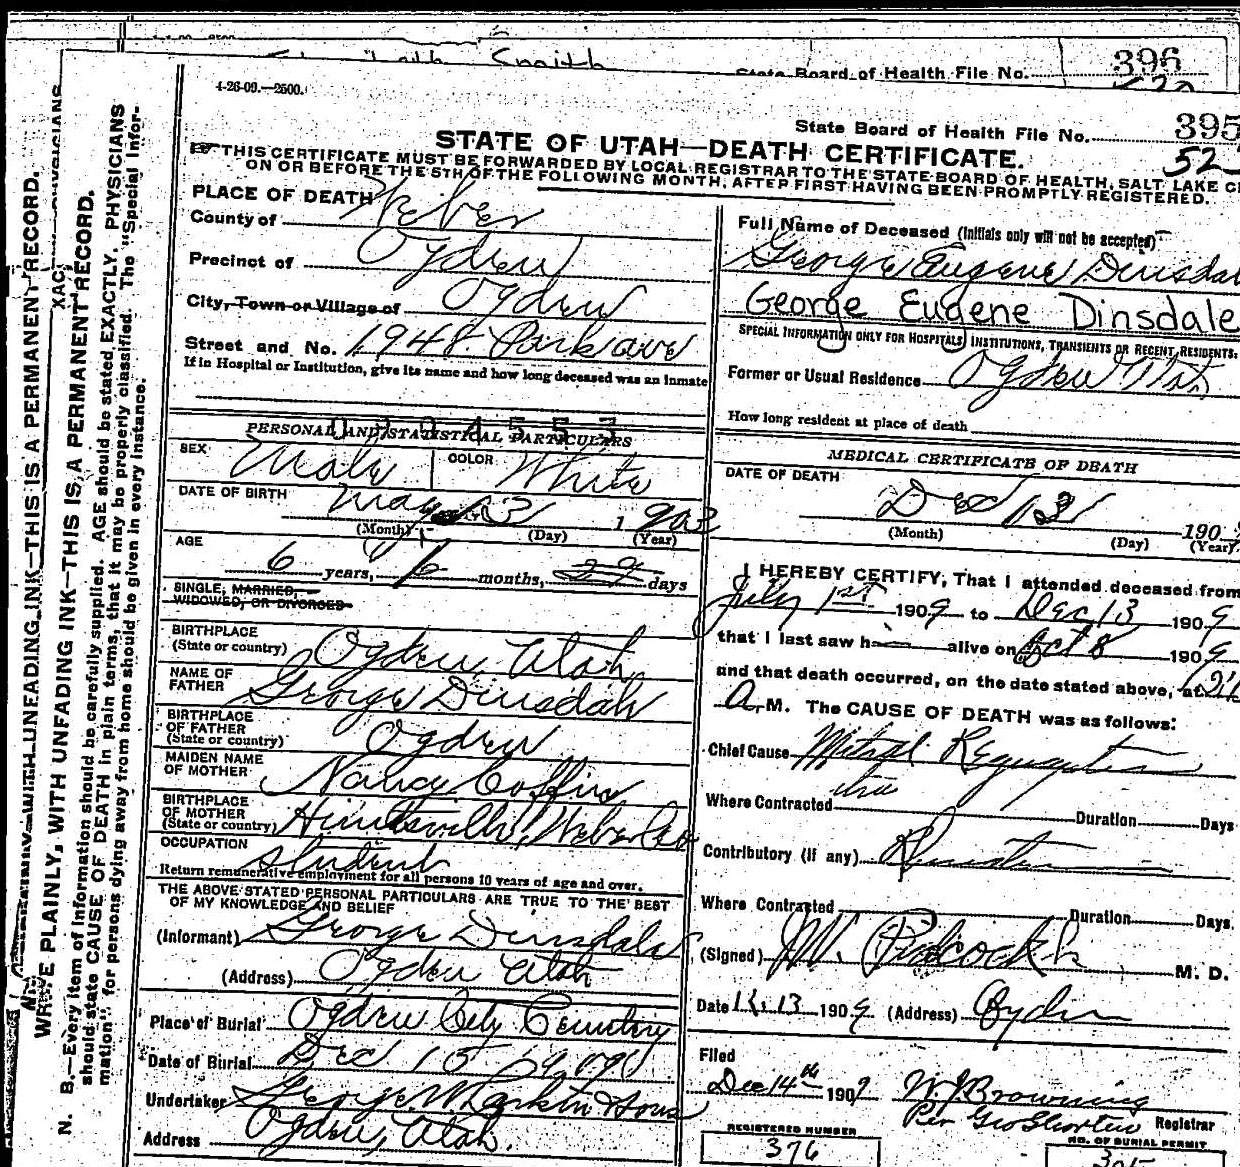 Smith
State Board of Health File No. 396
4-26-09.—2500.
State Board of Health File No. 395
52
STATE OF UTAH—DEATH CERTIFICATE.
THIS CERTIFICATE MUST BE FORWARDED BY LOCAL REGISTRAR TO THE STATE BOARD OF HEALTH, SALT LAKE C
ON OR BEFORE THE 5TH OF THE FOLLOWING MONTH, AFTER FIRST HAVING BEEN PROMPTLY REGISTERED.
PLACE OF DEATH
County of Weber
Precinct of Ogden
City, Town or Village of Ogden
Street and No. 1948 Park ave
If in Hospital or Institution, give its name and how long deceased was an inmate
PERSONAL AND STATISTICAL PARTICULARS
SEX Male COLOR White
DATE OF BIRTH May 13 1903
(Month) (Day) (Year)
AGE
6 years, 6 months, days
SINGLE, MARRIED,
WIDOWED, OR DIVORCED
BIRTHPLACE
(State or country) Ogden Utah
NAME OF
FATHER George Dinsdale
BIRTHPLACE
OF FATHER
(State or country) Ogden
MAIDEN NAME
OF MOTHER Nancy Coffin
BIRTHPLACE
OF MOTHER
(State or country) Huntsville, Weber Co
OCCUPATION
Student
Return remunerative employment for all persons 10 years of age and over.
THE ABOVE STATED PERSONAL PARTICULARS ARE TRUE TO THE BEST
OF MY KNOWLEDGE AND BELIEF
(Informant) George Dinsdale
(Address) Ogden Utah
Place of Burial Ogden City Cemetery
Date of Burial Dec 15 1909
Undertaker George W Larkin & Sons
Address Ogden, Utah.
Full Name of Deceased (Initials only will not be accepted)
George Eugene Dinsdal
George Eugene Dinsdale
SPECIAL INFORMATION ONLY FOR HOSPITALS, INSTITUTIONS, TRANSIENTS OR RECENT RESIDENTS:
Former or Usual Residence Ogden Ut
How long resident at place of death
MEDICAL CERTIFICATE OF DEATH
DATE OF DEATH
Dec 13 190
(Month) (Day) (Year)
I HEREBY CERTIFY, That I attended deceased from
July 1st 1909 to Dec 13 1909
that I last saw h alive on Oct 8 1909
and that death occurred, on the date stated above, at
A. M. The CAUSE OF DEATH was as follows:
Chief Cause Mitral Regurgitation
Where Contracted Duration Days
Contributory (if any)
Where Contracted Duration Days.
(Signed) M. D.
Date 12.13 1909 (Address) Ogden
Filed
Dec 14th 1909 W. J. Browning
Per Geo Shorten Registrar
REGISTERED NUMBER
376
NO. OF BURIAL PERMIT
WRITE PLAINLY, WITH UNFADING INK—THIS IS A PERMANENT RECORD.
N. B.—Every item of information should be carefully supplied. AGE should be stated EXACTLY. PHYSICIANS
should state CAUSE OF DEATH in plain terms, that it may be properly classified. The "Special Infor-
mation" for persons dying away from home should be given in every instance.